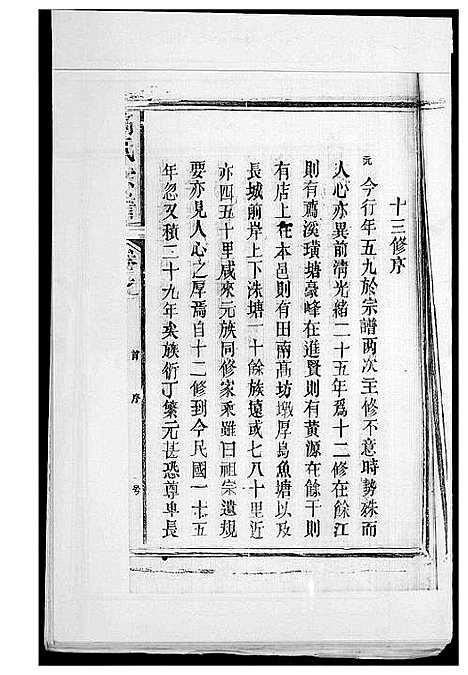 十三修序
元今行年五九於宗譜两次主修不意時勢殊而
人心亦異前清光緒二十五年爲十二修在餘江
則有薦溪璜塘豪峰在進賢則有黃源在餘干則
有店上在本邑則有田南高坊墩厚烏魚塘以及
長城前岸上下洙塘一十餘族遠或七八十里近
亦四五十里咸來元族同修家乘雖曰祖宗遺規
要亦見人心之厚焉自十二修到今民國一十五
年忽又積二十九年矣族衍丁繁元甚恐尊卑長
氏宗譜
卷之
首序
号